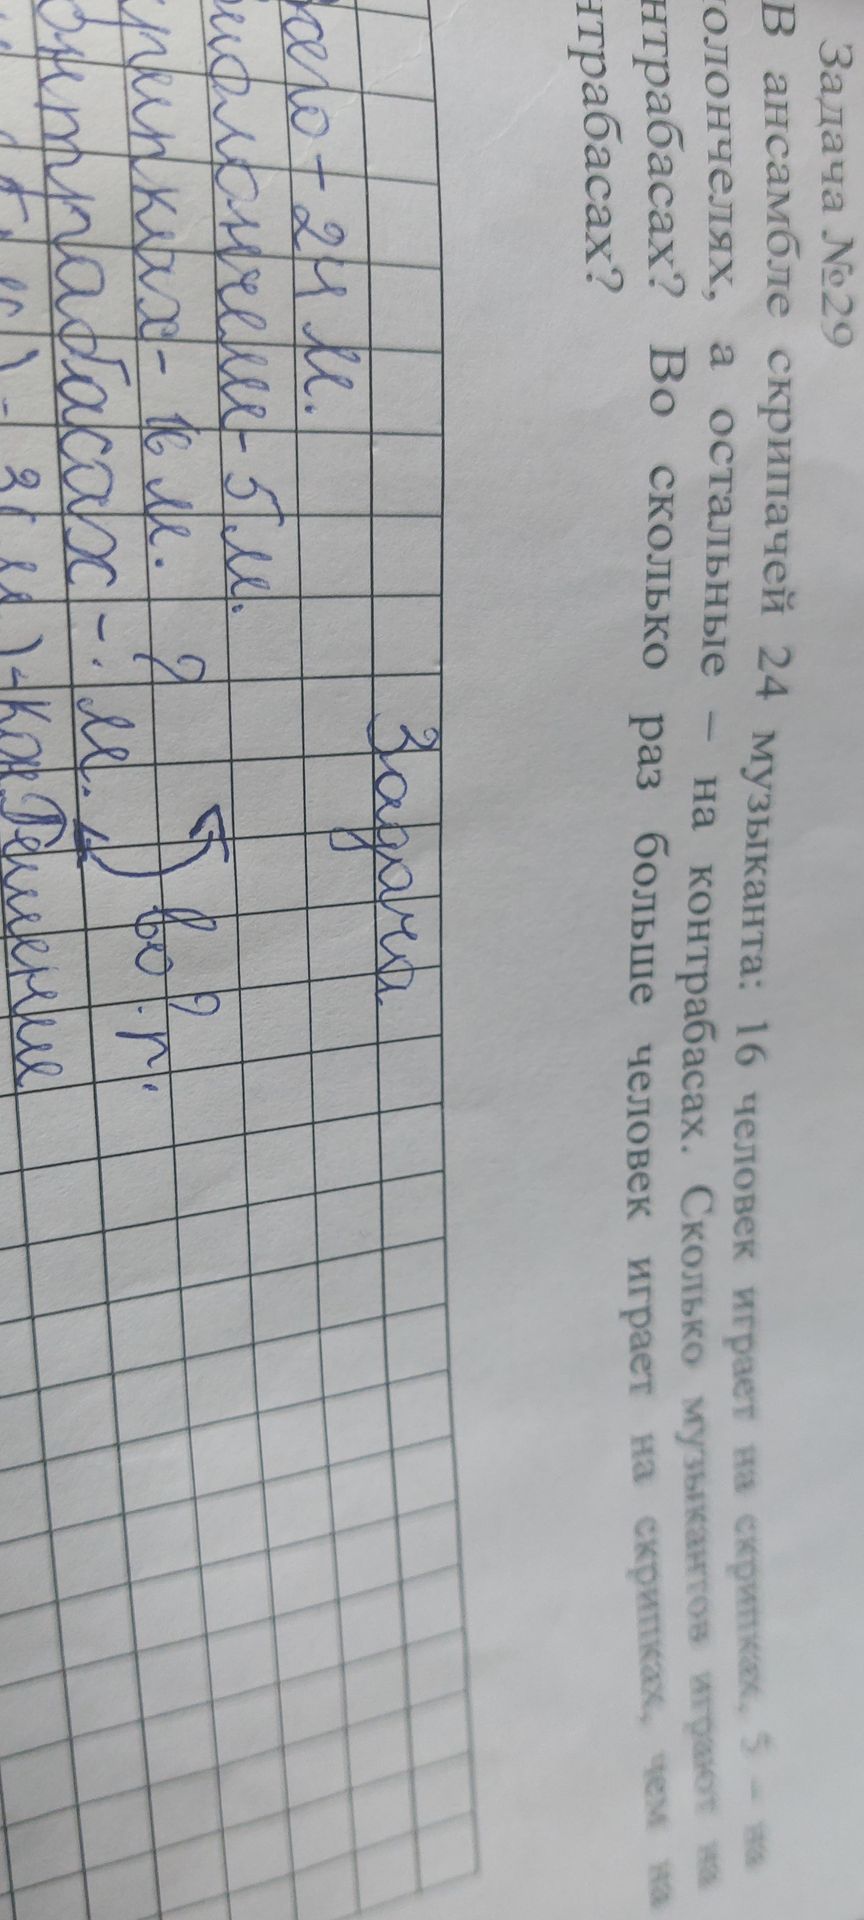 Задача №29
В ансамбле скрипачей 24 музыканта: 16 человек играет на скрипках, 5 – на
олончелях, а остальные – на контрабасах. Сколько музыкантов играют на
нтрабасах? Во сколько раз больше человек играет на скрипках, чем на
нтрабасах?
Задача
сего - 24 м.
иолончели - 5 м.
крипках - 16 м. ? во ? р.
онтрабасах - ? м.
Решение